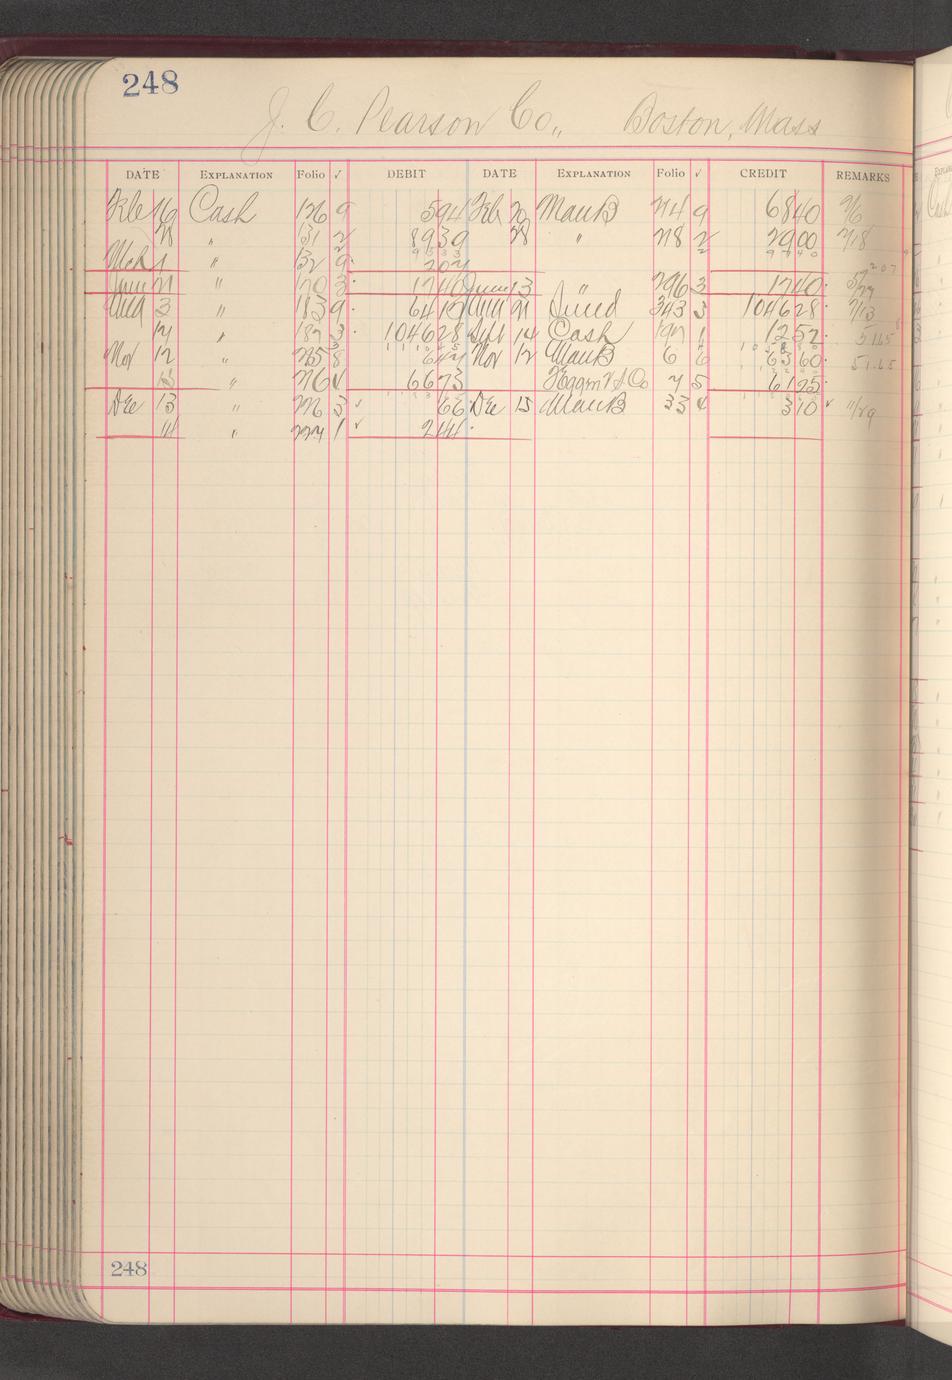 248
J. C. Pearson Co., Boston, Mass
DATE EXPLANATION Folio ✓ DEBIT DATE EXPLANATION Folio ✓ CREDIT REMARKS
Feb 16 Cash 126 9 594 Feb 20 ManB 214 9 6840 2/6
28 " 131 2 8939 28 " 218 2 2900 2/18
Mch 1 " 132 9 207
June 21 " 170 3 1740 June 13 " 296 3 1740 5/29
Aug 3 " 183 9 6412 Aug 21 Sured 343 3 104628 7/13
" 187 3 104628 Sept 14 Cash 197 1 1252 51.65
Nov 12 " 235 8 Nov 12 ManB 6 6 6360 51.65
" 264 6673 7 5 6125
Dec 13 " 276 3 ✓ 66 Dec 15 ManB 33 4 310 ✓ 11/29
" 277 1 ✓ 244
248